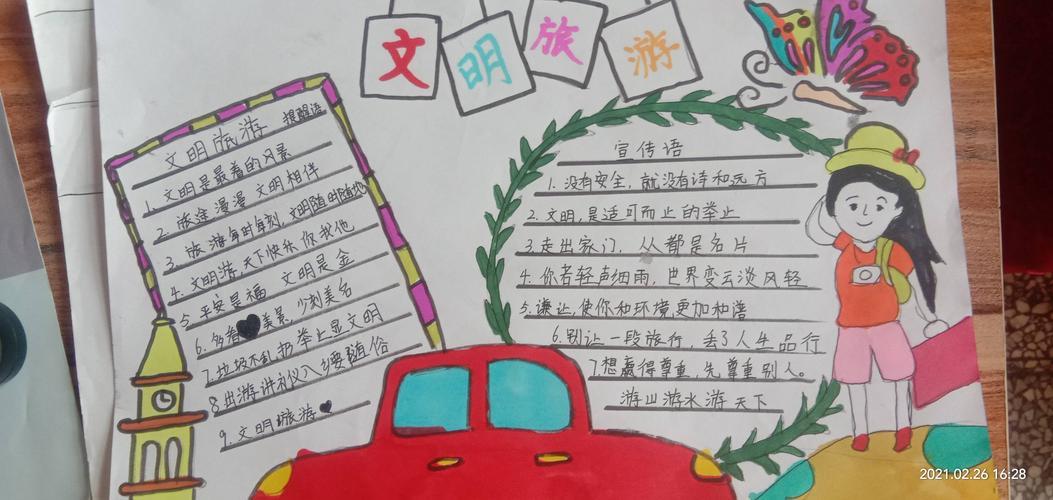 文明旅游
文明旅游 提醒语
1. 文明是最美的风景
2. 旅途漫漫 文明相伴
3. 旅游年时年刻, 文明随时随地
4. 文明游, 天下快乐你我他
5. 平安是福 文明是金
6. 多看美景, 少刻美名
7. 垃圾不乱扔举止显文明
8. 出游讲礼仪入乡要随俗
9. 文明旅游
宣传语
1. 没有安全, 就没有诗和远方
2. 文明, 是适可而止的举止
3. 走出家门, 人都是名片
4. 你若轻声细雨, 世界变云淡风轻
5. 谦让, 使你和环境更加和谐
6. 别让一段旅行, 丢了人生品行
7. 想赢得尊重, 先尊重别人。
游山游水游天下
2021.02.26 16:28